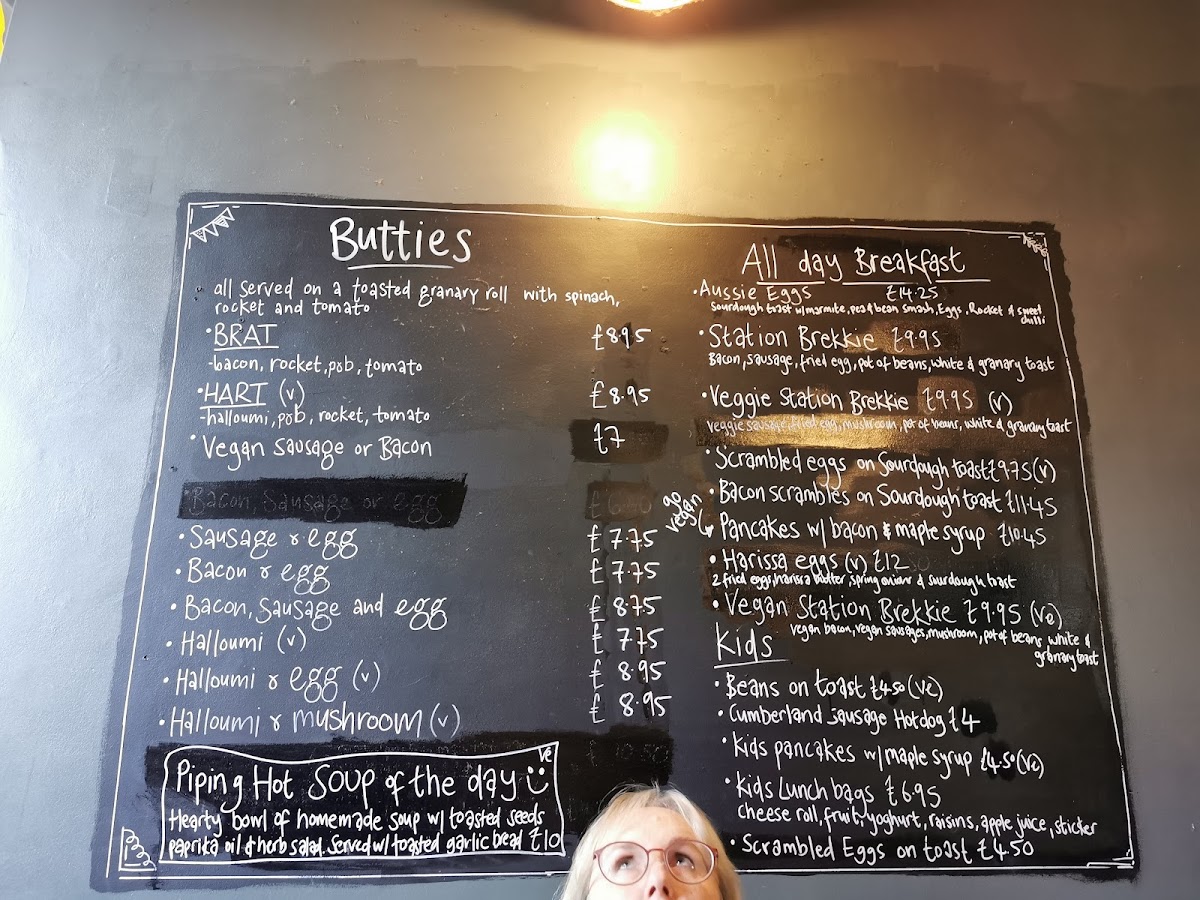 Butties
all served on a toasted granary roll with spinach,
rocket and tomato
• BRAT £8.95
-bacon, rocket, p&b, tomato
• HART (v) £8.95
-halloumi, p&b, rocket, tomato
• Vegan Sausage or Bacon £7
Bacon, Sausage or egg
• Sausage & egg £7.75
• Bacon & egg £7.75
• Bacon, Sausage and egg £8.75
• Halloumi (v) £7.75
• Halloumi & egg (v) £8.95
• Halloumi & mushroom (v) £8.95
Piping Hot Soup of the day ve
Hearty bowl of homemade soup w/ toasted seeds
paprika oil & herb salad. Served w/ toasted garlic bead £10
All day Breakfast
• Aussie Eggs £14.25
Sourdough toast w/marmite, pea & bean smash, Eggs, Rocket & sweet
chilli
• Station Brekkie £9.95
Bacon, sausage, fried egg, pot of beans, white & granary toast
• Veggie Station Brekkie £9.95 (v)
Veggie sausage, fried egg, mushroom, pot of beans, white & granary toast
• Scrambled eggs on Sourdough toast £9.75 (v)
• Bacon scrambles on Sourdough toast £11.45
go
vegan
• Pancakes w/ bacon & maple syrup £10.45
• Harissa eggs (v) £12
2 fried eggs, harissa butter, spring onions & sourdough toast
• Vegan Station Brekkie £9.95 (ve)
vegan bacon, vegan sausages, mushroom, pot of beans, white &
granary toast
Kids
• Beans on toast £4.50 (ve)
• Cumberland Sausage Hotdog £4
• Kids pancakes w/maple syrup £4.50 (ve)
• Kids Lunch bags £6.95
cheese roll, fruit, yoghurt, raisins, apple juice, sticker
• Scrambled Eggs on toast £4.50